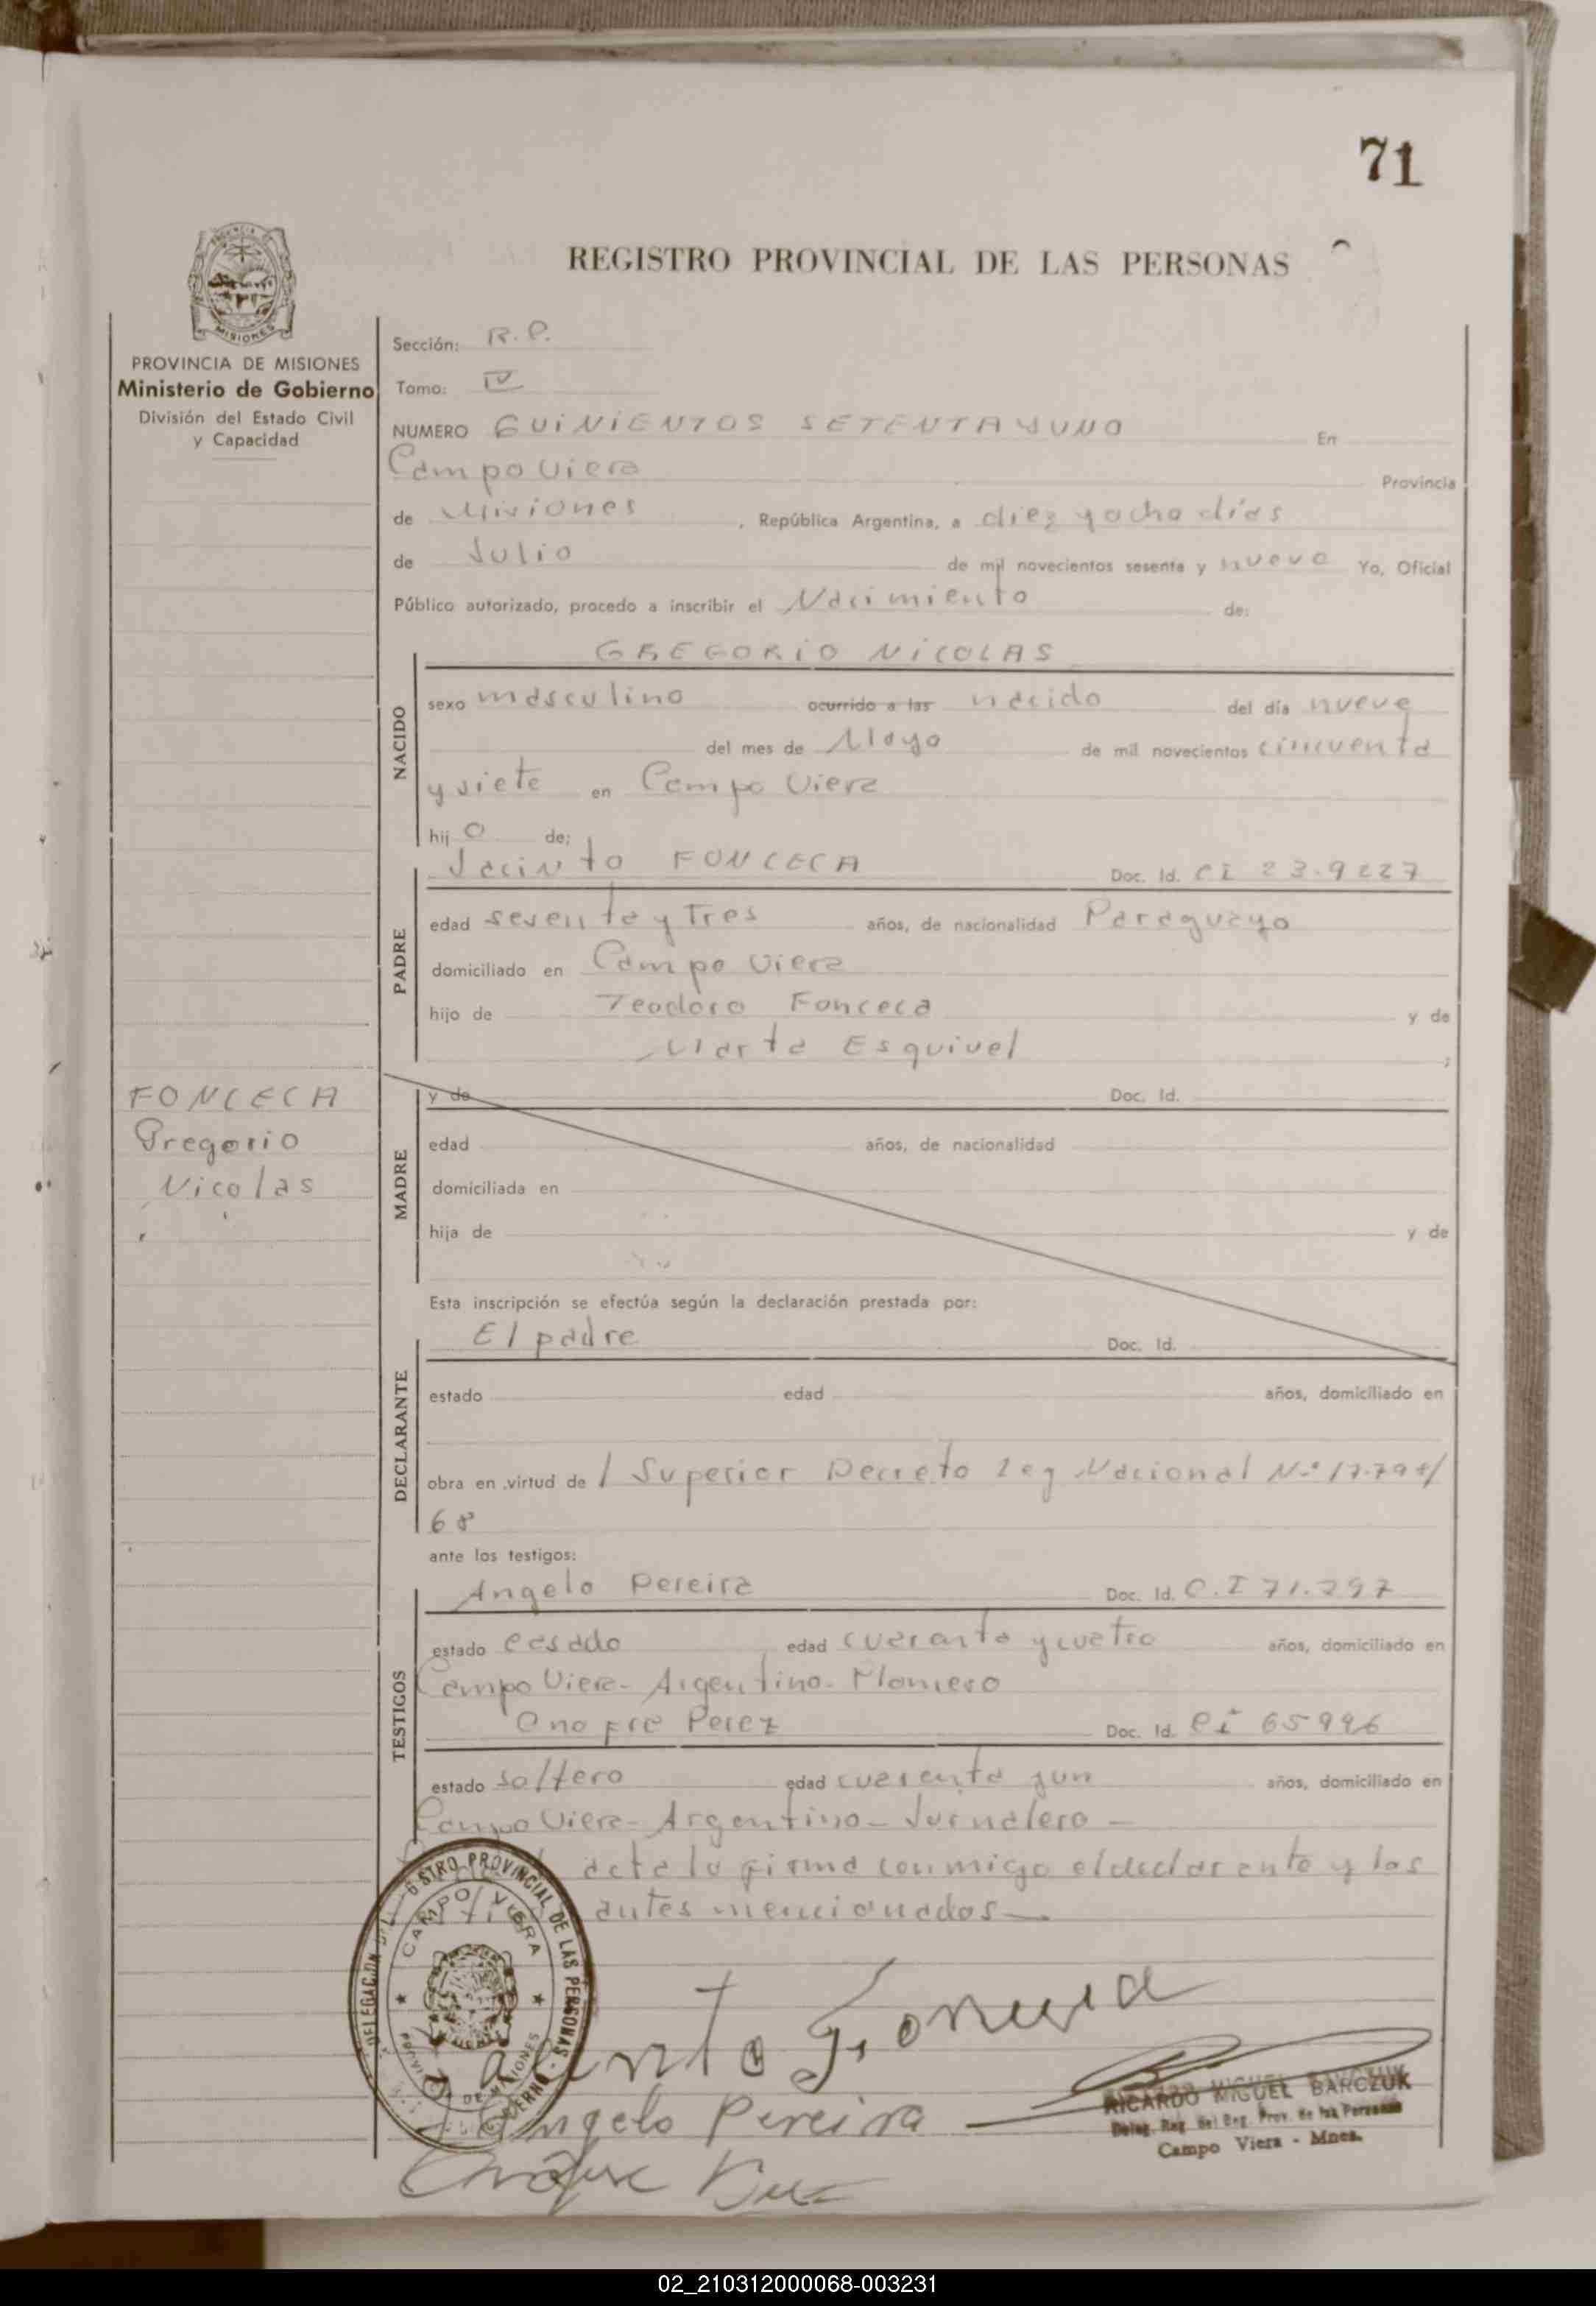 71
REGISTRO PROVINCIAL DE LAS PERSONAS
PROVINCIA DE MISIONES
Ministerio de Gobierno
División del Estado Civil
y Capacidad
Sección: R.P.
Tomo: IV
NUMERO QUINIENTOS SETENTA YUNO En
Campo Viera Provincia
de Misiones, República Argentina, a diez y ocho días
de Julio de mil novecientos sesenta y nueve Yo, Oficial
Público autorizado, procedo a inscribir el Nacimiento de:
GREGORIO NICOLAS
NACIDO
sexo masculino ocurrido a las nacido del día nueve
del mes de Mayo de mil novecientos cincuenta
y siete en Campo Viera
hij o de:
Jacinto FONCECA Doc. Id. CI 23.9227
PADRE
edad sesenta y Tres años, de nacionalidad Paraguayo
domiciliado en Campo Viera
hijo de Teodoro Fonceca y de
Marta Esquivel ;
FONCECA
Gregorio
Nicolas
MADRE
y de Doc. Id.
edad años, de nacionalidad
domiciliada en
hija de y de
Esta inscripción se efectúa según la declaración prestada por:
El padre Doc. Id.
DECLARANTE
estado edad años, domiciliado en
obra en virtud de l Superior Decreto Ley Nacional N.º
68
ante los testigos:
Angelo Pereira Doc. Id. C.I 71.297
TESTIGOS
estado casado edad cuarenta y cuatro años, domiciliado en
Campo Viera- Argentino-
Onofre Perez Doc. Id. CI 65996
estado soltero edad cuarenta yun años, domiciliado en
Campo Viera- Argentino- Jornalero-
acta la firma conmigo el declarante y los
antes mencionados-
DELEGACION DEL REGISTRO PROVINCIAL DE LAS PERSONAS
CAMPO VIERA
PROVINCIA DE MISIONES
Jacinto Fonceca
Angelo Pereira
RICARDO MIGUEL BARCZUK
Deleg. Reg. del Reg. Prov. de las Personas
Campo Viera - Mnes.
02_210312000068-003231